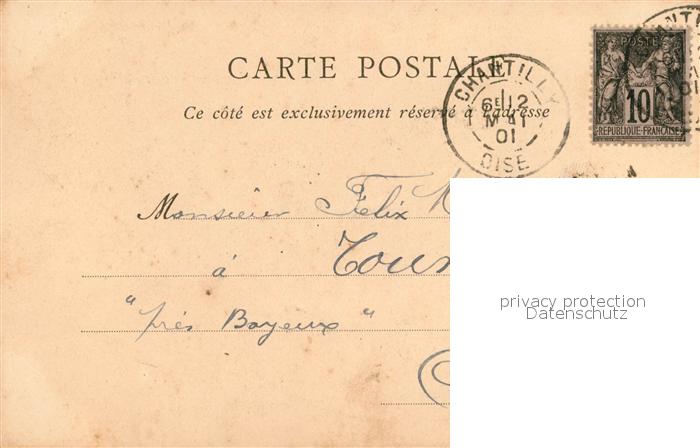 CARTE POSTALE
Ce côté est exclusivement réservé à l'adresse
CHANTILLY
6E 12
MAI
01
OISE
POSTE
10
REPUBLIQUE FRANÇAISE
Monsieur Félix
à
"près Bayeux"
privacy protection
Datenschutz